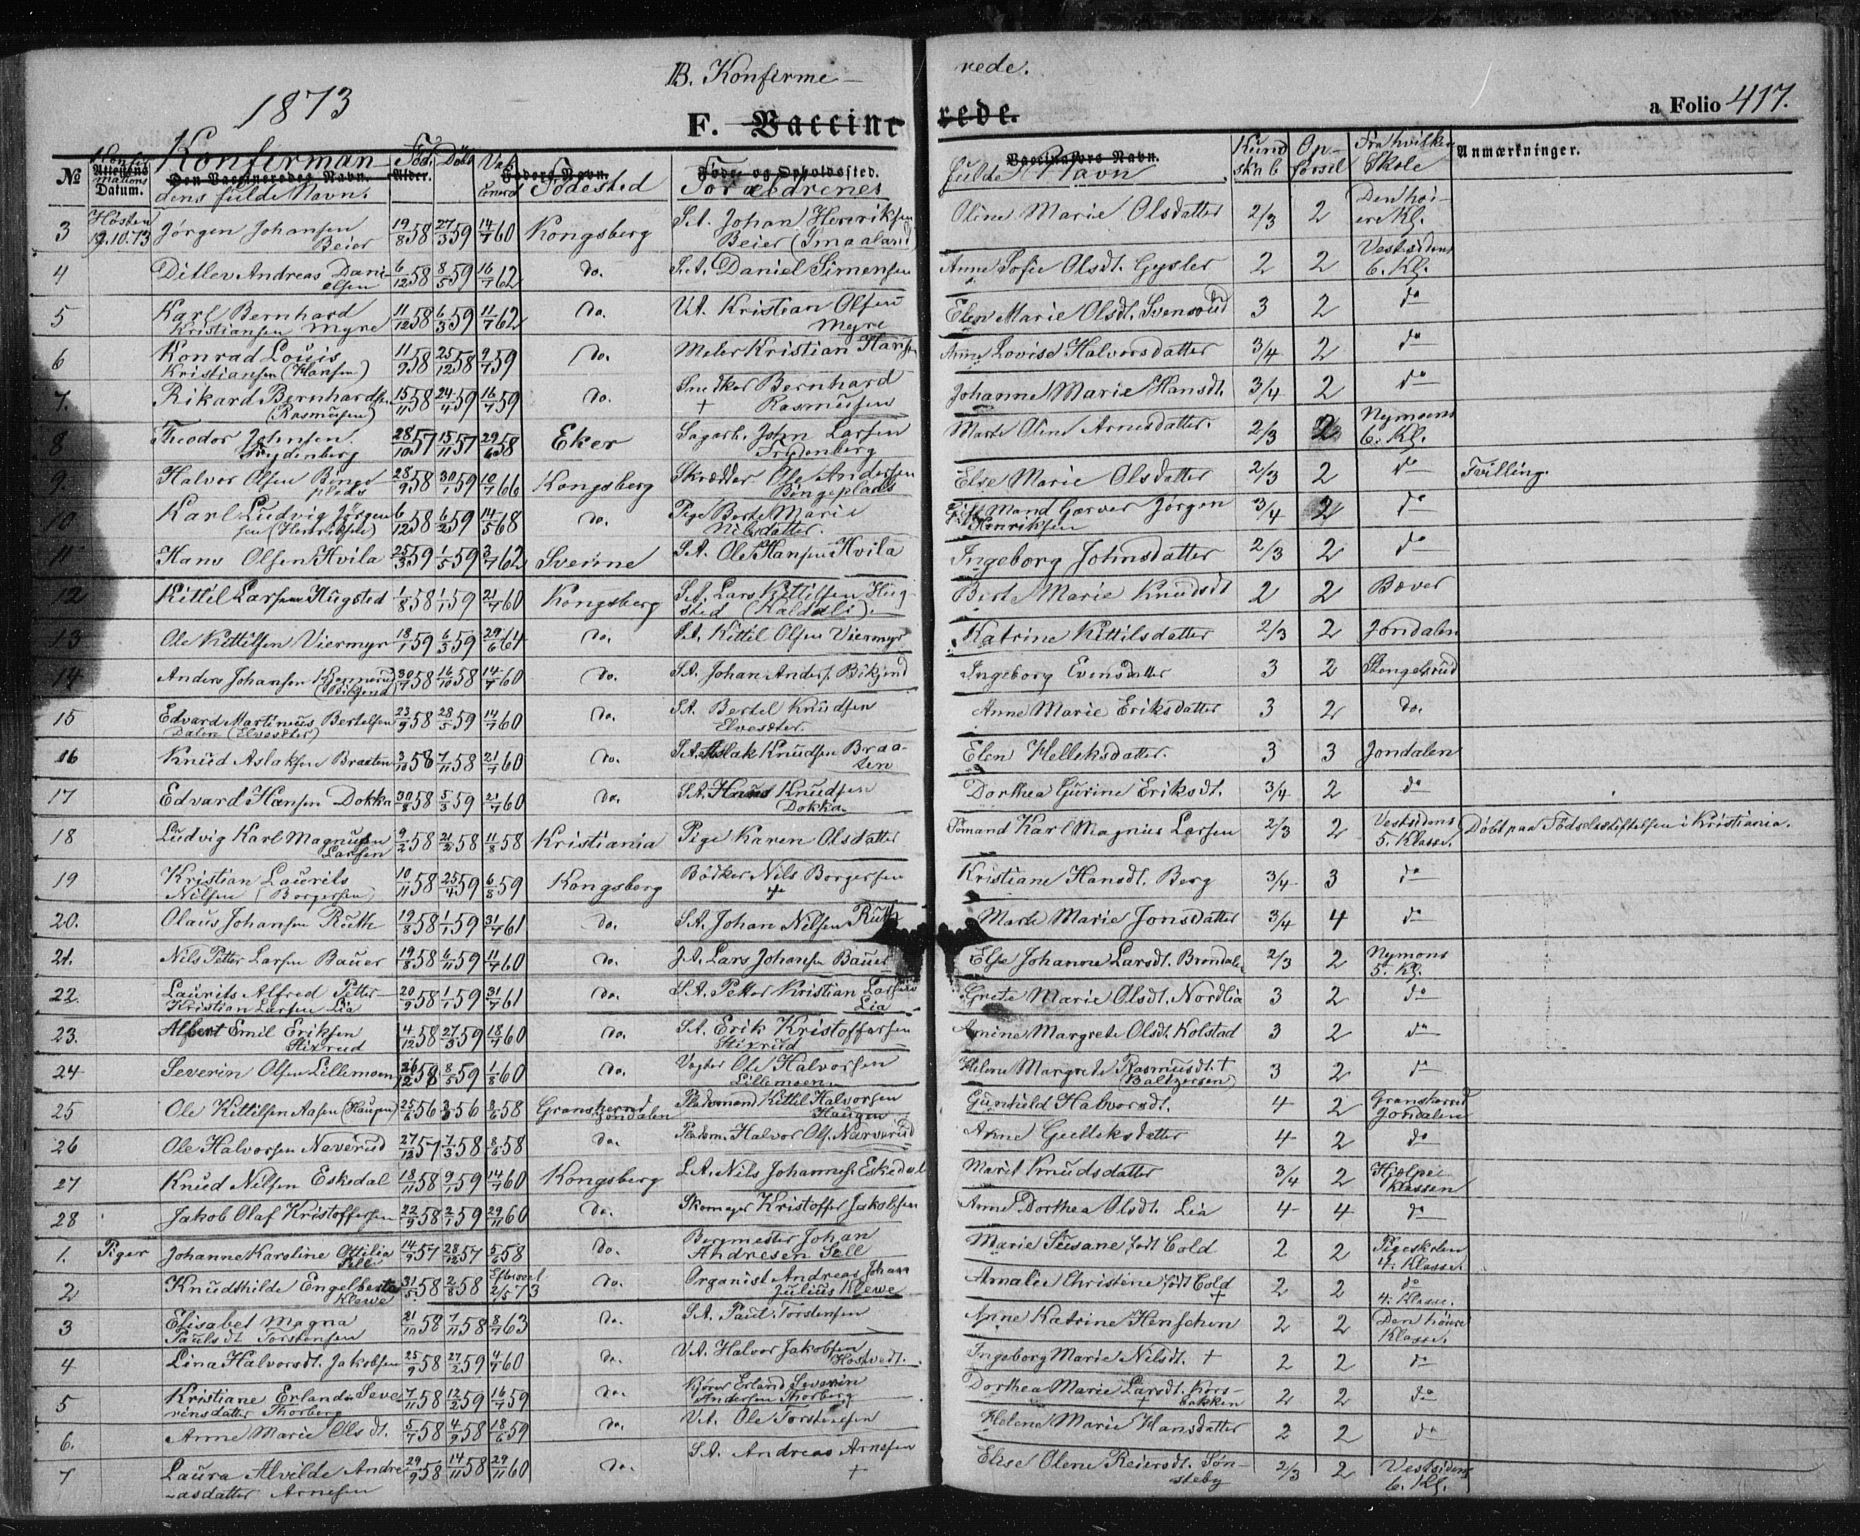 B. Konferme- rede.
1873
F. Vaccine rede.
a Folio 417.
№ Konfirmations Datum. Konferman dens fulde Navn. Den Vaccineredes Navn. Fød. Alder. Døbt Vac cinered Fødested Forældrenes Fødes og Opholdssted.
Fulde Navn Vaccinators Navn. Kund skab Op- førsel Fra hvilken Skole Anmærkninger.
3 Høsten 12.10.73 Jørgen Johansen Beier 19/8 58 27/3 59 14/7 60 Kongsberg S.A. Johan Henriksen Beier (Smaaland) Oline Marie Olsdatter 2/3 2 Den høi- ere Kl.
4 Ditlev Andreas Dani- elsen 6/12 58 8/5 59 16/7 62 do. S.A. Daniel Simensen Anne Sofie Olsdt. Gysler 2 2 Vestsidens 6. Kl.
5 Karl Bernhard Kristiansen Myre 11/12 58 6/3 59 11/7 62 do. V.A. Kristian Olsen Myre Elen Marie Olsdt. Svensrud 3 2 do
6 Konrad Louis Kristiansen (Hansen) 11/9 58 25/12 58 9/7 59 do. Maler Kristian Hansen Anne Lovise Halvorsdatter 3/4 2 do
7. Rikard Bernhardsen (Rasmusen) 15/11 58 24/4 59 16/7 59 do. Snedker Bernhard Rasmusen + Johanne Marie Hansdt. 3/4 2 do
8 Theodor Johnsen Frydenberg 28/10 57 15/11 57 29/6 58 Eker Sagarb. John Larsen Frydenberg Marte Oline Arnesdatter. 2/3 2 Nymoens 6. Kl.
9. Halvor Olsen Binge plads 28/9 58 30/1 59 10/7 66 Kongsberg Skrædder Ole Andersen Bingeplads Else Marie Olsdatter 2/3 2 do Tvilling.
10 Karl Ludvig Jörgen sen (Henriksen) 6/12 58 6/2 59 14/5 68 do. Pige Berte Marie Nilsdatter. Gift Mand Garver Jørgen Henriksen 3/4 2 do
11 Hans Olsen Hvila 25/3 59 1/5 59 3/7 62 Svenne S.A. Ole Hansen Hvila Ingeborg Johnsdatter 2/3 2 do
12 Kittil Larsen Hugsted 1/8 58 1/1 59 21/7 60 Kongsberg S.A. Lars Kittilsen Hug- sted (Kaldali). Birte Marie Knudsdt 2 2 Bæver
13 Ole Kittilsen Viermyr 18/1 59 6/3 59 29/6 61 do. S.A. Kittil Olsen Viermyr Katrine Kittilsdatter 2/3 2 Jondalen
14 Anders Johansen (Bikjend) 30/7 58 16/10 58 14/7 60 do. S.A. Johan Anders. Bikjend Ingeborg Evensdatter 3 2 Stengelsrud
15 Edvard Martinius Bertelsen Dalen (Elvesæter) 23/9 58 28/5 59 14/7 60 do. S.A. Bertel Knudsen Elvesæter. Anne Marie Eriksdatter 3 2 do.
16 Knud Aslaksen Braaten 3/10 58 7/11 58 21/7 60 do. S.A. Aslak Knudsen Braa- ten Elen Helleksdatter. 3 3 Jondalen
17 Edvard Hansen Dokka 30/8 58 5/3 59 21/7 60 do. S.A. Hans Knudsen Dokka Dorthea Gurine Eriksdt. 3/4 2 do
18 Ludvig Karl Magnusen Larsen 9/2 58 21/2 58 11/8 58 Kristiania Pige Karen Olsdatter Sømand Karl Magnus Larsen 2/3 2 Vestsidens 5. Klasse. Døbt paa Fødselsstiftelsen i Kristiania.
19 Kristian Laurits Nilsen (Borgersen) 10/11 58 25/4 59 6/8 59 Kongsberg Bödker Nils Borgersen + Kristiane Hansdt. Berg 3/4 3 do
20. Olaus Johansen Ruth 19/8 58 1/1 59 31/7 61 do. S.A. Johan Nilsen Ruth Marte Marie Jonsdatter 3/4 4 do
21. Nils Petter Larsen Bauer 19/8 58 6/11 59 11/7 60 do. S.A. Lars Johansen Bauer Else Johanne Larsdt. Brøndalen 2/3 2 Nymons 5. Kl.
22. Laurits Alfred Petter- Kristian Larsen Lia 20/9 58 1/1 59 31/7 61 do. S.A. Petter Kristian Larsen Lia Grete Marie Olsdt. Nordlia 3 2 do
23. Albert Emil Eriksen Stixrud 4/12 58 27/3 59 18/7 60 do. S.A. Erik Kristoffersen Stixrud Amine Margrete Olsdt. Kolstad 3 2 do
24 Severin Olsen Lillemoen 26/12 58 8/5 59 1/8 60 do. Vogter Ole Halvorsen Lillemoen Helene Margrete Rasmusdt. + (Baltzersen) 3 2 do
25 Ole Kittilsen Aasen (Haugen) 25/6 56 56 8/6 58 Gransherred Jondalen Pladsmand Kittil Halvorsen Haugen Gunhild Halvorsdt. 4 2 Gransherred Jondalen
26 Ole Halvorsen Naverud 27/12 57 7/3 58 8/6 58 do. Pladsm. Halvor Ols. Narverud Anne Gulleksdatter 4 2 do
27 Knud Nilsen Eskedal 18/11 58 9/1 59 14/7 60 Kongsberg S.A. Nils Johannes. Eskedal Marit Knudsdatter 3/4 2 Hjælpe- klassen
28 Jakob Olaf Kristoffersen 22/9 58 2/1 59 29/11 60 do. Skomager Kristoffer Jakobsen Anne Dorthea Olsdt. Lia 4 4 do
1. Piger Johanne Karoline Ottilia Sell 14/9 57 28/12 57 5/6 58 do. Bergmester Johan Andresen Sell Marie Susane født Cold 2 2 Pigeskolen 4. Klasse.
2 Knudshilde Engelberta Klewe 31/5 58 2/8 58 2/5 73 do. Organist Andreas Johan Julius Klewe Amalie Christine født Cold + 2 2 do 4. Klasse.
3 Elisabet Magna Paulsdt. Torstensen 21/10 58 7/11 58 8/7 63 do. S.A. Paul Torstensen Anne Katrine Henschen 2 2 Den höiere Klasse.
4 Lina Halvorsdt. Jakobsen 25/9 58 27/2 59 4/7 60 do. V.A. Halvor Jakobsen Hostvedt. Ingeborg Marie Nilsdt. + 2 2 do
5 Kristiane Erlanda Seve- rinsdatter Thorberg 7/11 58 12/2 59 16/7 59 do. Kjører Erland Severin Andersen Thorberg Dorthea Marie Larsdt. Kors- bakken + 2 2 do
6. Anne Marie Olsdt. 5/7 58 4/9 58 18/6 59 do. V.A. Ole Torstensen Helene Marie Hansdatter 2 2 do
7 Laura Alvilde Andre- asdatter Arnesen 29/9 58 14/11 58 29/11 60 do. S.A. Andreas Arnesen + Elise Olene Reiersdt. Søn- steby 2/3 2 Vestsidens 6. Kl.